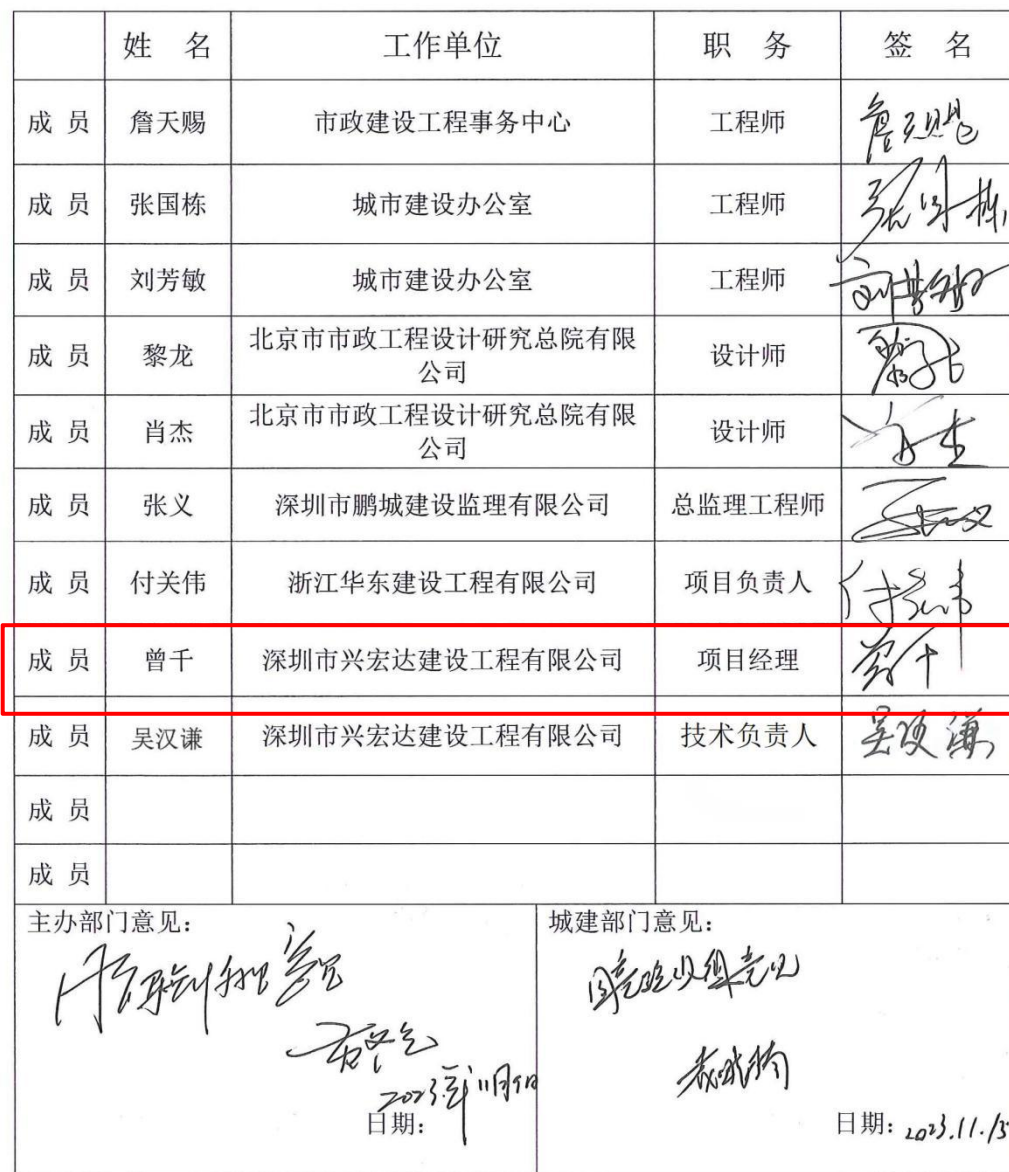 姓 名 工作单位 职 务 签 名
成 员 詹天赐 市政建设工程事务中心 工程师 詹天赐
成 员 张国栋 城市建设办公室 工程师 张国栋
成 员 刘芳敏 城市建设办公室 工程师 刘芳敏
成 员 黎龙 北京市市政工程设计研究总院有限
公司 设计师 黎龙
成 员 肖杰 北京市市政工程设计研究总院有限
公司 设计师 肖杰
成 员 张义 深圳市鹏城建设监理有限公司 总监理工程师 张义
成 员 付关伟 浙江华东建设工程有限公司 项目负责人 付关伟
成 员 曾千 深圳市兴宏达建设工程有限公司 项目经理 曾千
成 员 吴汉谦 深圳市兴宏达建设工程有限公司 技术负责人 吴汉谦
成 员
成 员
主办部门意见: 城建部门意见:
同意验收组意见
2023年11月9日
日期: 日期: 2023.11.15